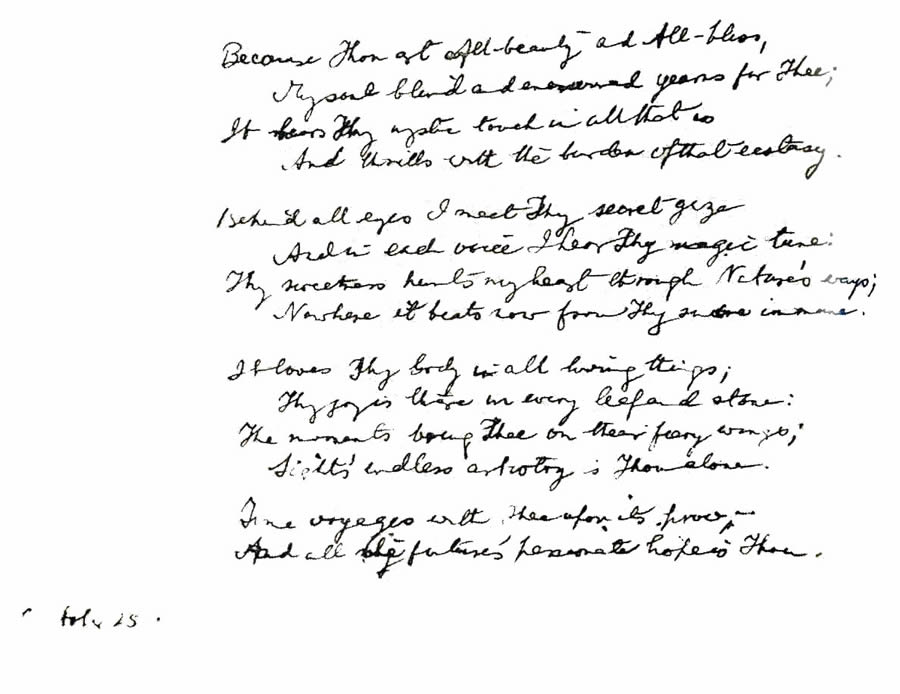 Because Thou art All-beauty and All-bliss,
My soul blind and enamoured yearns for Thee;
It bears Thy mystic touch in all that is
And thrills with the burden of that ecstasy.
Behind all eyes I meet Thy secret gaze
And in each voice I hear Thy magic tune:
Thy sweetness hunts my heart through Nature's ways;
Nowhere it beats now from Thy snare immune.
It loves Thy body in all living things;
Thy joy is there in every leaf and stone:
The moments bring Thee on their fiery wings;
Sight's endless artistry is Thou alone.
Time voyages with Thee upon its prow,—
And all the future's passionate hope is Thou.
25